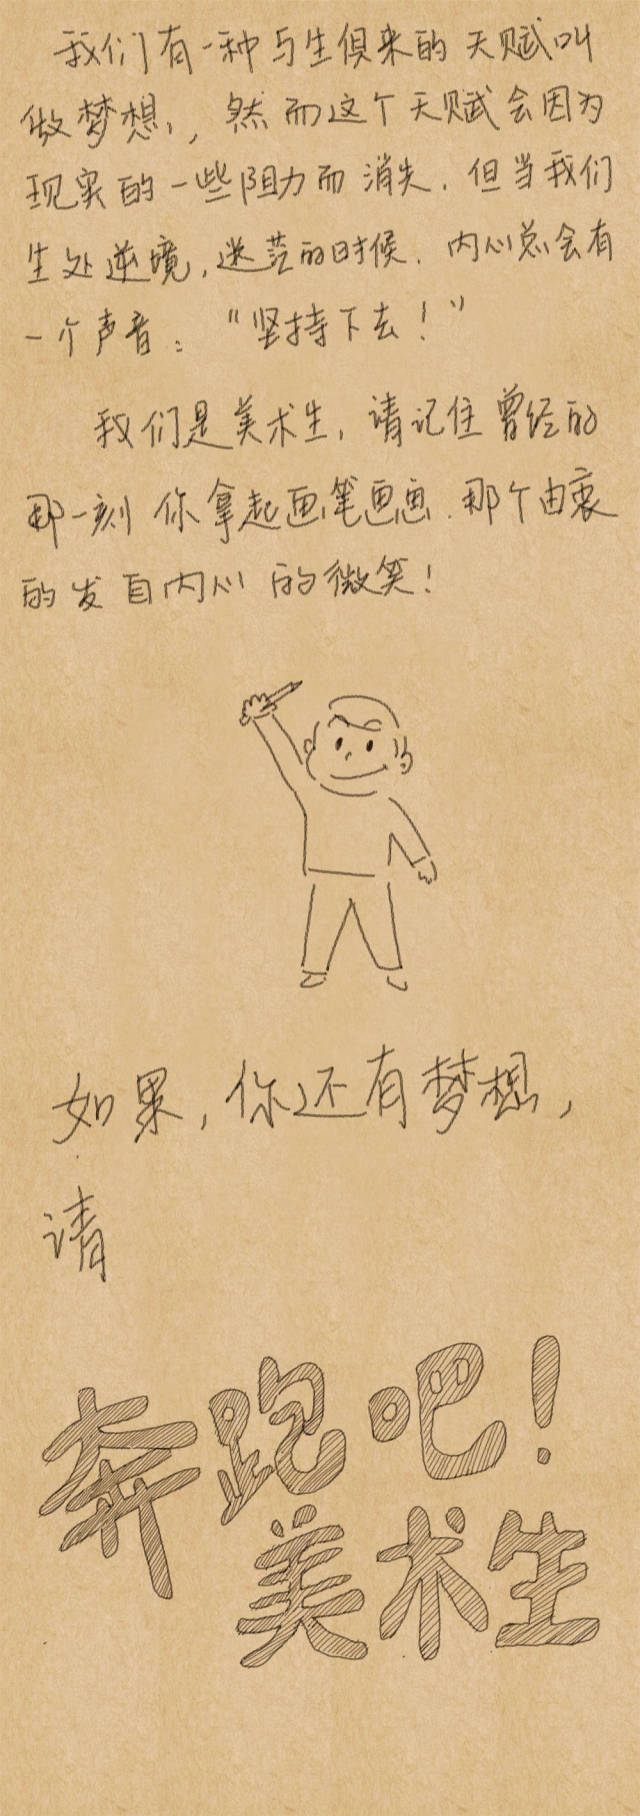 我们有一种与生俱来的天赋叫
做梦想，然而这个天赋会因为
现实的一些阻力而消失．但当我们
生处逆境，迷茫的时候．内心总会有
一个声音：“坚持下去！”
我们是美术生，请记住曾经的
那一刻你拿起画笔画画．那个由衷
的发自内心的微笑！
如果，你还有梦想，
请
奔跑吧！
美术生